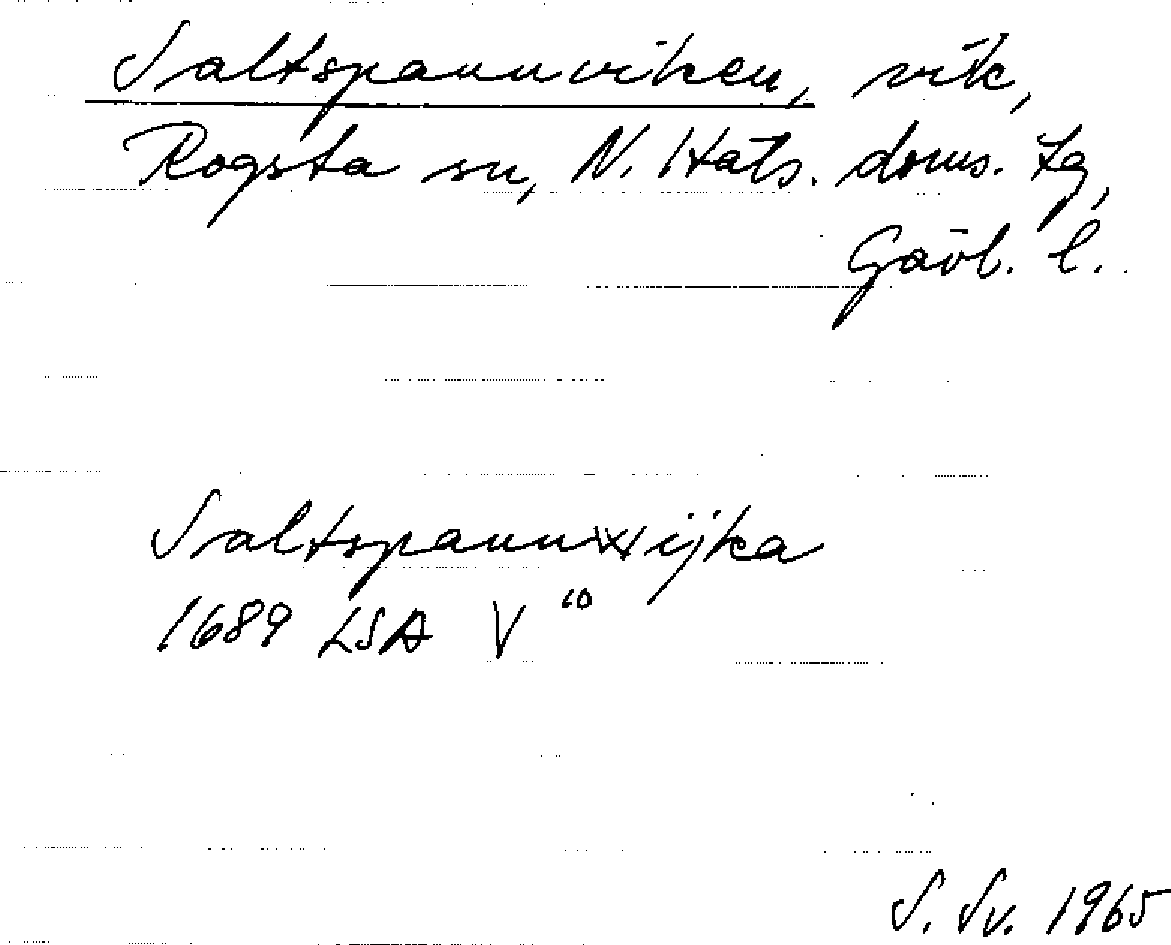 Saltspannviken, vik,
Rogsta sn, N. Häls. doms. tg,
Gävl. l.
Saltspannwijka
1689 LSA V 10
S. Sv. 1965